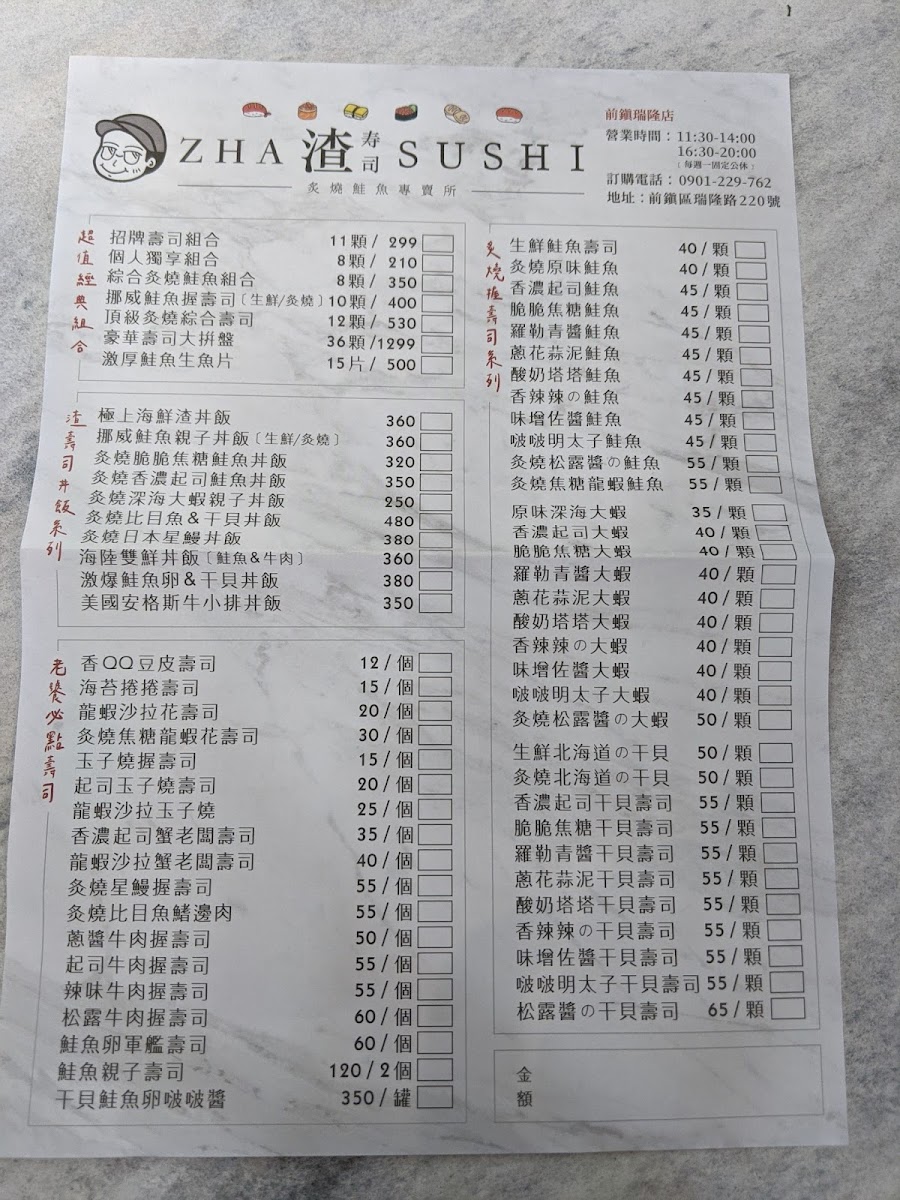 ZHA 渣 寿司 SUSHI
炙燒鮭魚專賣所
前鎮瑞隆店
營業時間：11:30-14:00
16:30-20:00
﹝每週一固定公休﹞
訂購電話：0901-229-762
地址：前鎮區瑞隆路220號
超值經典組合
招牌壽司組合 11顆 / 299
個人獨享組合 8顆 / 210
綜合炙燒鮭魚組合 8顆 / 350
挪威鮭魚握壽司〔生鮮/炙燒〕10顆 / 400
頂級炙燒綜合壽司 12顆 / 530
豪華壽司大拼盤 36顆 /1299
激厚鮭魚生魚片 15片 / 500
渣壽司丼飯系列
極上海鮮渣丼飯 360
挪威鮭魚親子丼飯〔生鮮/炙燒〕 360
炙燒脆脆焦糖鮭魚丼飯 320
炙燒香濃起司鮭魚丼飯 350
炙燒深海大蝦親子丼飯 250
炙燒比目魚&干貝丼飯 480
炙燒日本星鰻丼飯 380
海陸雙鮮丼飯〔鮭魚&牛肉〕 360
激爆鮭魚卵&干貝丼飯 380
美國安格斯牛小排丼飯 350
老饕必點壽司
香QQ豆皮壽司 12 / 個
海苔捲捲壽司 15 / 個
龍蝦沙拉花壽司 20 / 個
炙燒焦糖龍蝦花壽司 30 / 個
玉子燒握壽司 15 / 個
起司玉子燒壽司 20 / 個
龍蝦沙拉玉子燒 25 / 個
香濃起司蟹老闆壽司 35 / 個
龍蝦沙拉蟹老闆壽司 40 / 個
炙燒星鰻握壽司 55 / 個
炙燒比目魚鰭邊肉 55 / 個
蔥醬牛肉握壽司 50 / 個
起司牛肉握壽司 55 / 個
辣味牛肉握壽司 55 / 個
松露牛肉握壽司 60 / 個
鮭魚卵軍艦壽司 60 / 個
鮭魚親子壽司 120 / 2個
干貝鮭魚卵啵啵醬 350 / 罐
炙燒握壽司系列
生鮮鮭魚壽司 40 / 顆
炙燒原味鮭魚 40 / 顆
香濃起司鮭魚 45 / 顆
脆脆焦糖鮭魚 45 / 顆
羅勒青醬鮭魚 45 / 顆
蔥花蒜泥鮭魚 45 / 顆
酸奶塔塔鮭魚 45 / 顆
香辣辣の鮭魚 45 / 顆
味增佐醬鮭魚 45 / 顆
啵啵明太子鮭魚 45 / 顆
炙燒松露醬の鮭魚 55 / 顆
炙燒焦糖龍蝦鮭魚 55 / 顆
原味深海大蝦 35 / 顆
香濃起司大蝦 40 / 顆
脆脆焦糖大蝦 40 / 顆
羅勒青醬大蝦 40 / 顆
蔥花蒜泥大蝦 40 / 顆
酸奶塔塔大蝦 40 / 顆
香辣辣の大蝦 40 / 顆
味增佐醬大蝦 40 / 顆
啵啵明太子大蝦 40 / 顆
炙燒松露醬の大蝦 50 / 顆
生鮮北海道の干貝 50 / 顆
炙燒北海道の干貝 50 / 顆
香濃起司干貝壽司 55 / 顆
脆脆焦糖干貝壽司 55 / 顆
羅勒青醬干貝壽司 55 / 顆
蔥花蒜泥干貝壽司 55 / 顆
酸奶塔塔干貝壽司 55 / 顆
香辣辣の干貝壽司 55 / 顆
味增佐醬干貝壽司 55 / 顆
啵啵明太子干貝壽司 55 / 顆
松露醬の干貝壽司 65 / 顆
金額